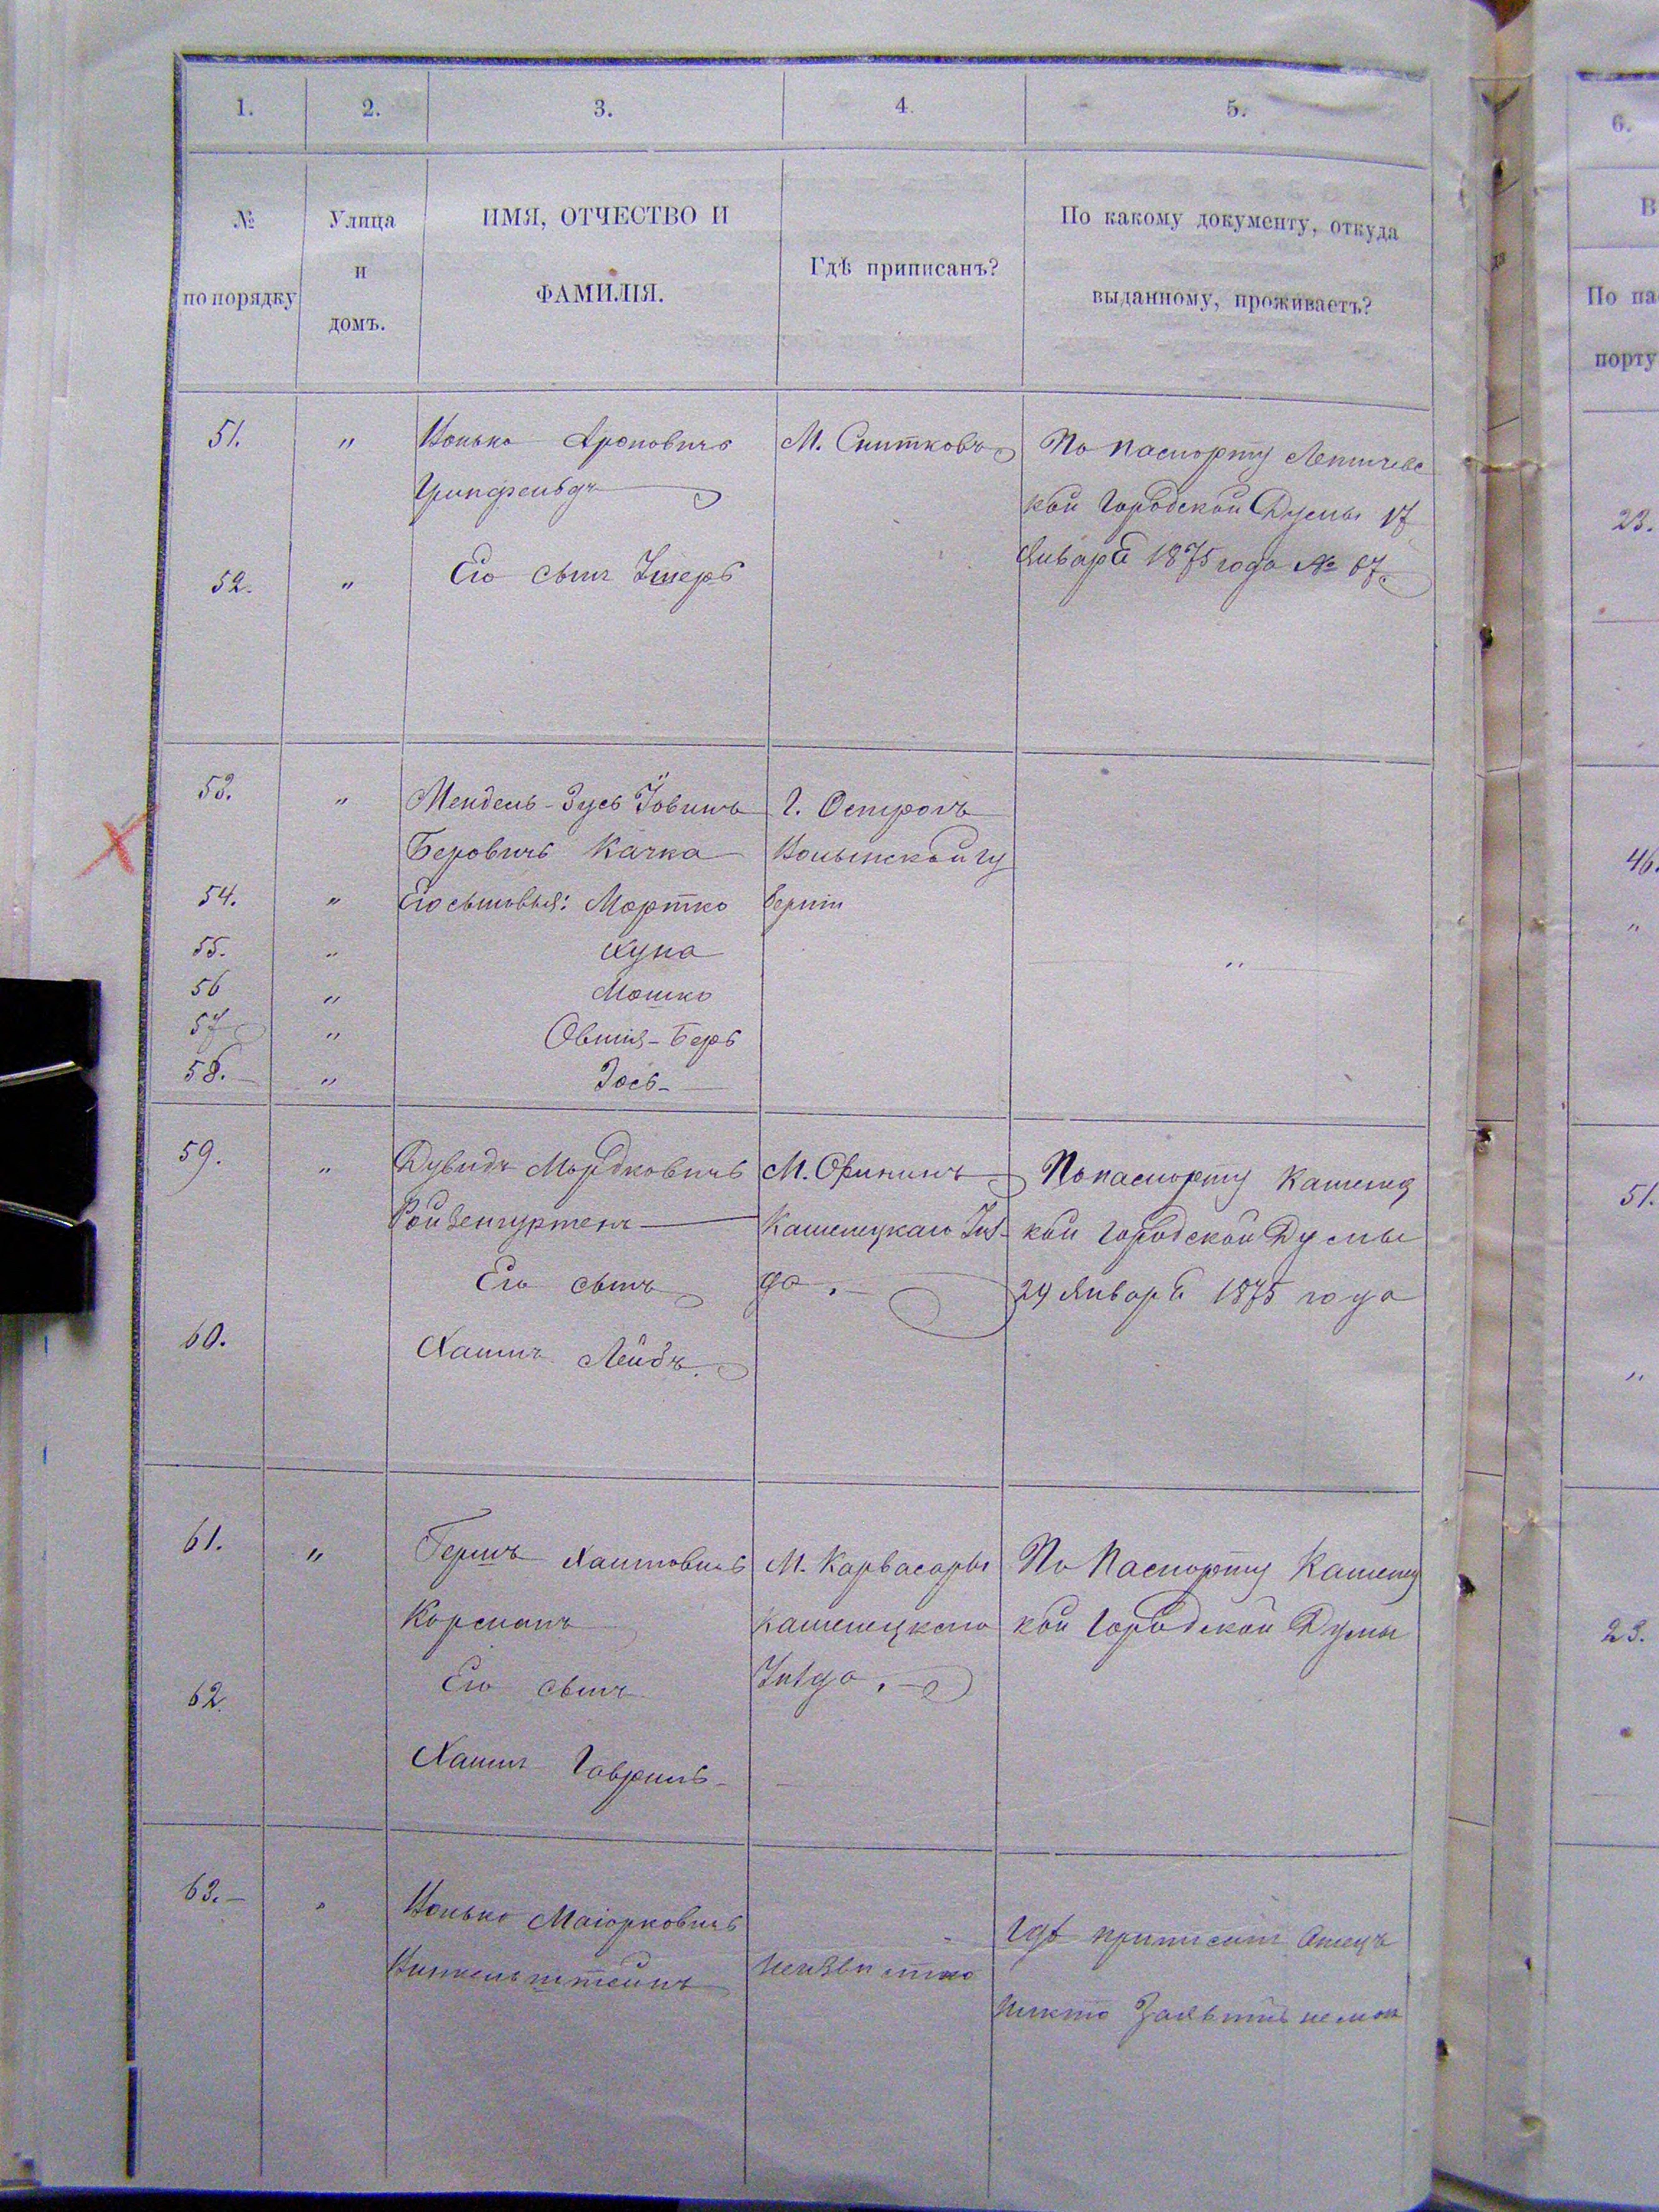 1. 2. 3. 4. 5.
№ по порядку
Улица и домъ.
ИМЯ, ОТЧЕСТВО И
ФАМИЛІЯ.
Гдѣ приписанъ?
По какому документу, откуда
выданному, проживаетъ?
51. " Ионько Ароновичъ М. Снитковъ По паспорту Летичевс
Гринфельдъ кой Городской Думы 17
Января 1875 года № 67.
52. " Его сынъ Умеръ
53. " Мендель-Зусь Іовинъ Г. Острогъ
Беровичъ Качка Волынской гу
54. " Его сыновья: Мортко берніи
55. " Хуна "
56 " Мошко
57 " Овшія-Беръ
58. " Зось
59. " Дувидъ Мордковичъ М. Орининъ По паспорту Каменец
Ройзенгуртенъ Каменецкаго Уѣз- кой Городской Думы
Его сынъ да. 24 Января 1875 года
60. Хаимъ Лейбъ.
61. " Гершъ Хаимовичъ М. Карвасары По Паспорту Каменец
Корсманъ Каменецкаго кой Городской Думы
Его сынъ Уѣзда.
62. Хаимъ Гаврилъ
63. " Ионько Маіорковичъ Гдѣ приписанъ Отецъ
неизвѣстно никто Заявить не мож
6.
В
По па
порту
23.
46.
"
51.
"
23.